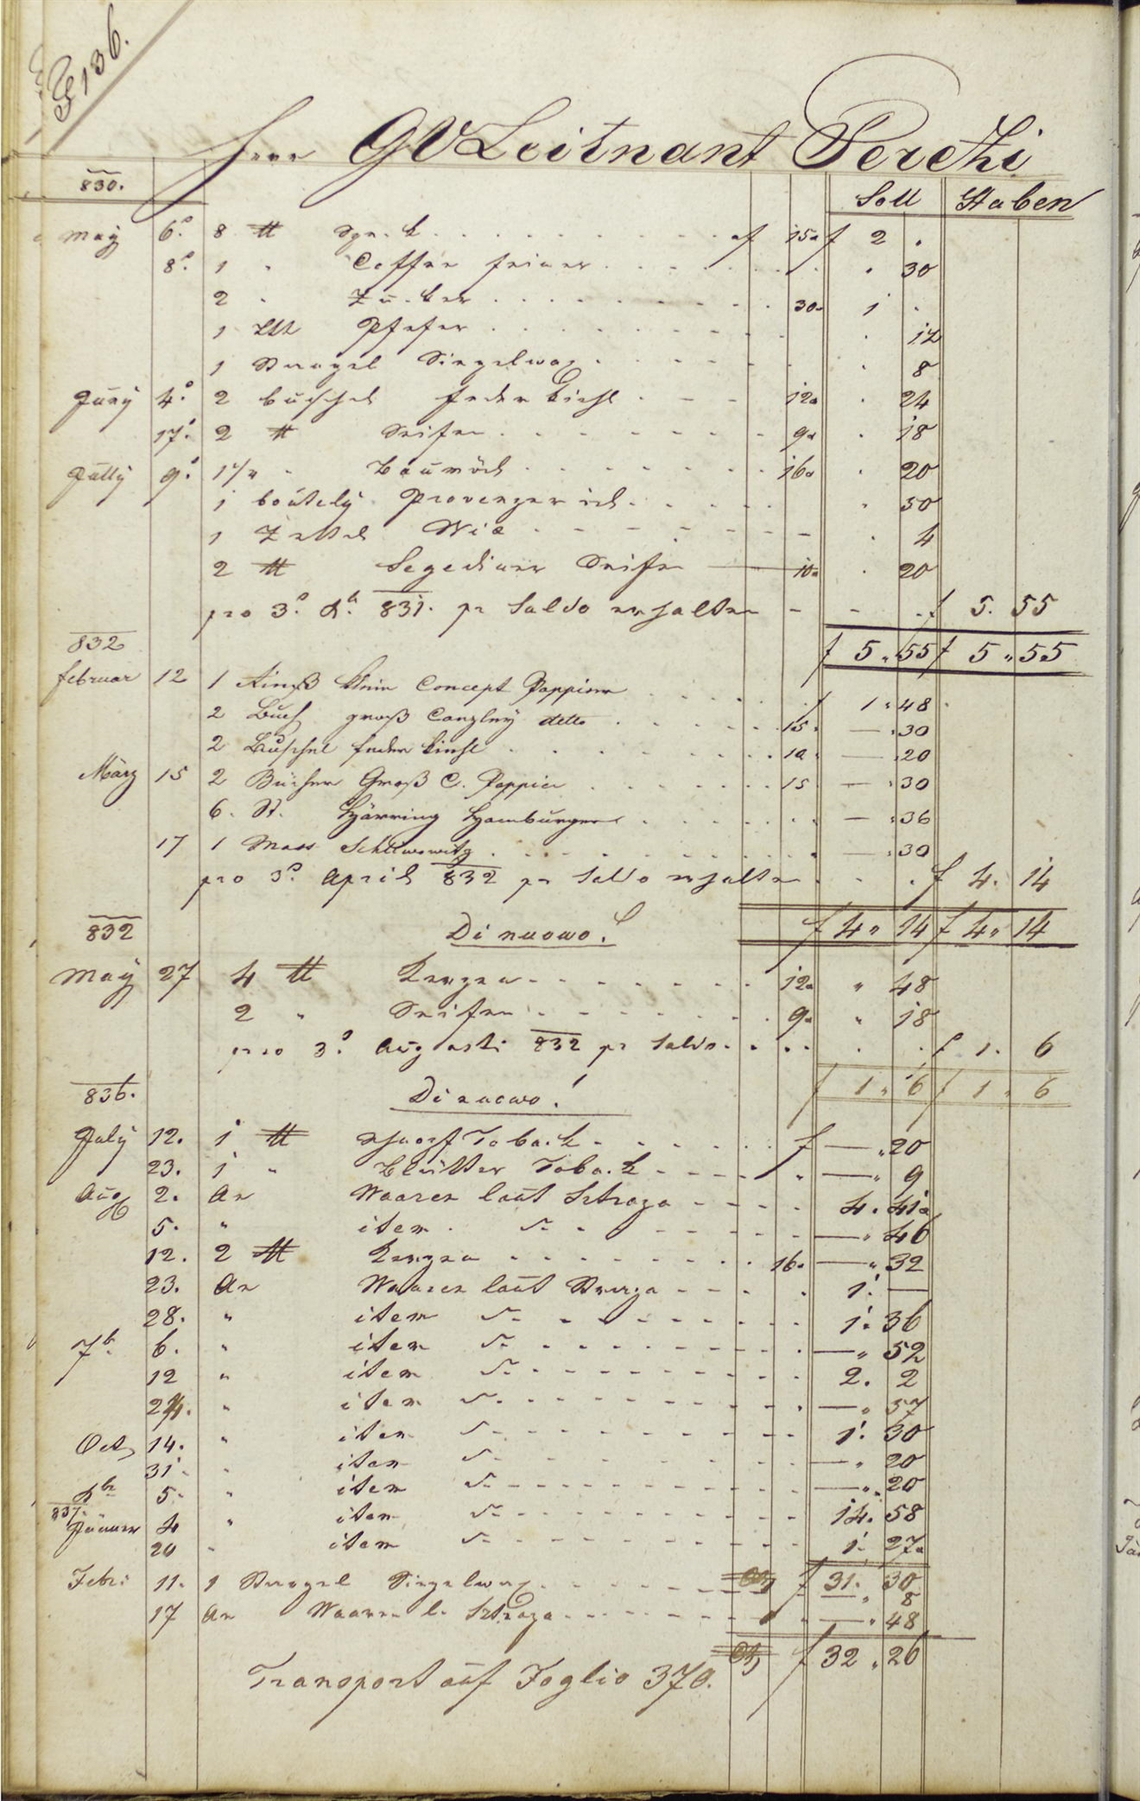 136.
Herr GVLeitnant Perchi
830.
Soll Haben
May 6. 8 ℔ af 15 f 2 .
8. 1 " Coffee feiner . 30
2 " Zucker 30 1 .
1 Lth Pfefer 12
1 Stangel Siegelwax 8
Juny 4. 2 buschel federkiehl 12 24
17. 2 ℔ Seifen 9 18
Jully 9. 1 1/4 " Baumöhl 16 20
1 boutely Provenzer öhl 50
1 Zettel Wix 4
2 ℔ Segediner Seifen 10 20
pro 3. 831. pr Saldo erhalten f 5. 55
f 5. 55 f 5. 55
832
februar 12 1 Rieß klein Concept Pappier f 1. 48
2 Buch groß Canzley detto 15 30
2 Buschel federkiehl 10 20
März 15 2 Bücher Groß C. Pappier 15 30
6. St. Häring Hamburger 36
17 1 Mass 30
pro 3. April 832 pr Saldo erhalten f 4. 14
f 4. 14 f 4. 14
832 Di nuowo!
May 27 4 ℔ Kerzen 12 48
2 " Seifen 9 18
pro 3. Augusti 832 pr Saldo f 1. 6
f 1. 6 f 1. 6
836. Di nuowo!
July 12. 1 ℔ Toback f — 20
23. 1 " Blätter Toback — 9
Aug 2. An Waaren laut Strazza 4. 41
5. " item — 46
12. 2 ℔ Kerzen 16 — 32
23. An Waaren laut Strazza 1. —
28. " item 1. 36
7b. 6. " item — 52
12 " item 2. 2
24. " item — 57
Oct 14. " item 1. 30
31. " item — 20
5. " item — 20
837.
Jänner 4 " item 14. 58
20 " item 1. 27
Febr: 11. 1 Stangel Siegelwax f 31. 30
8
17 An Waaren l. Strazza — 48
f 32. 26
Transport auf Foglio 370.